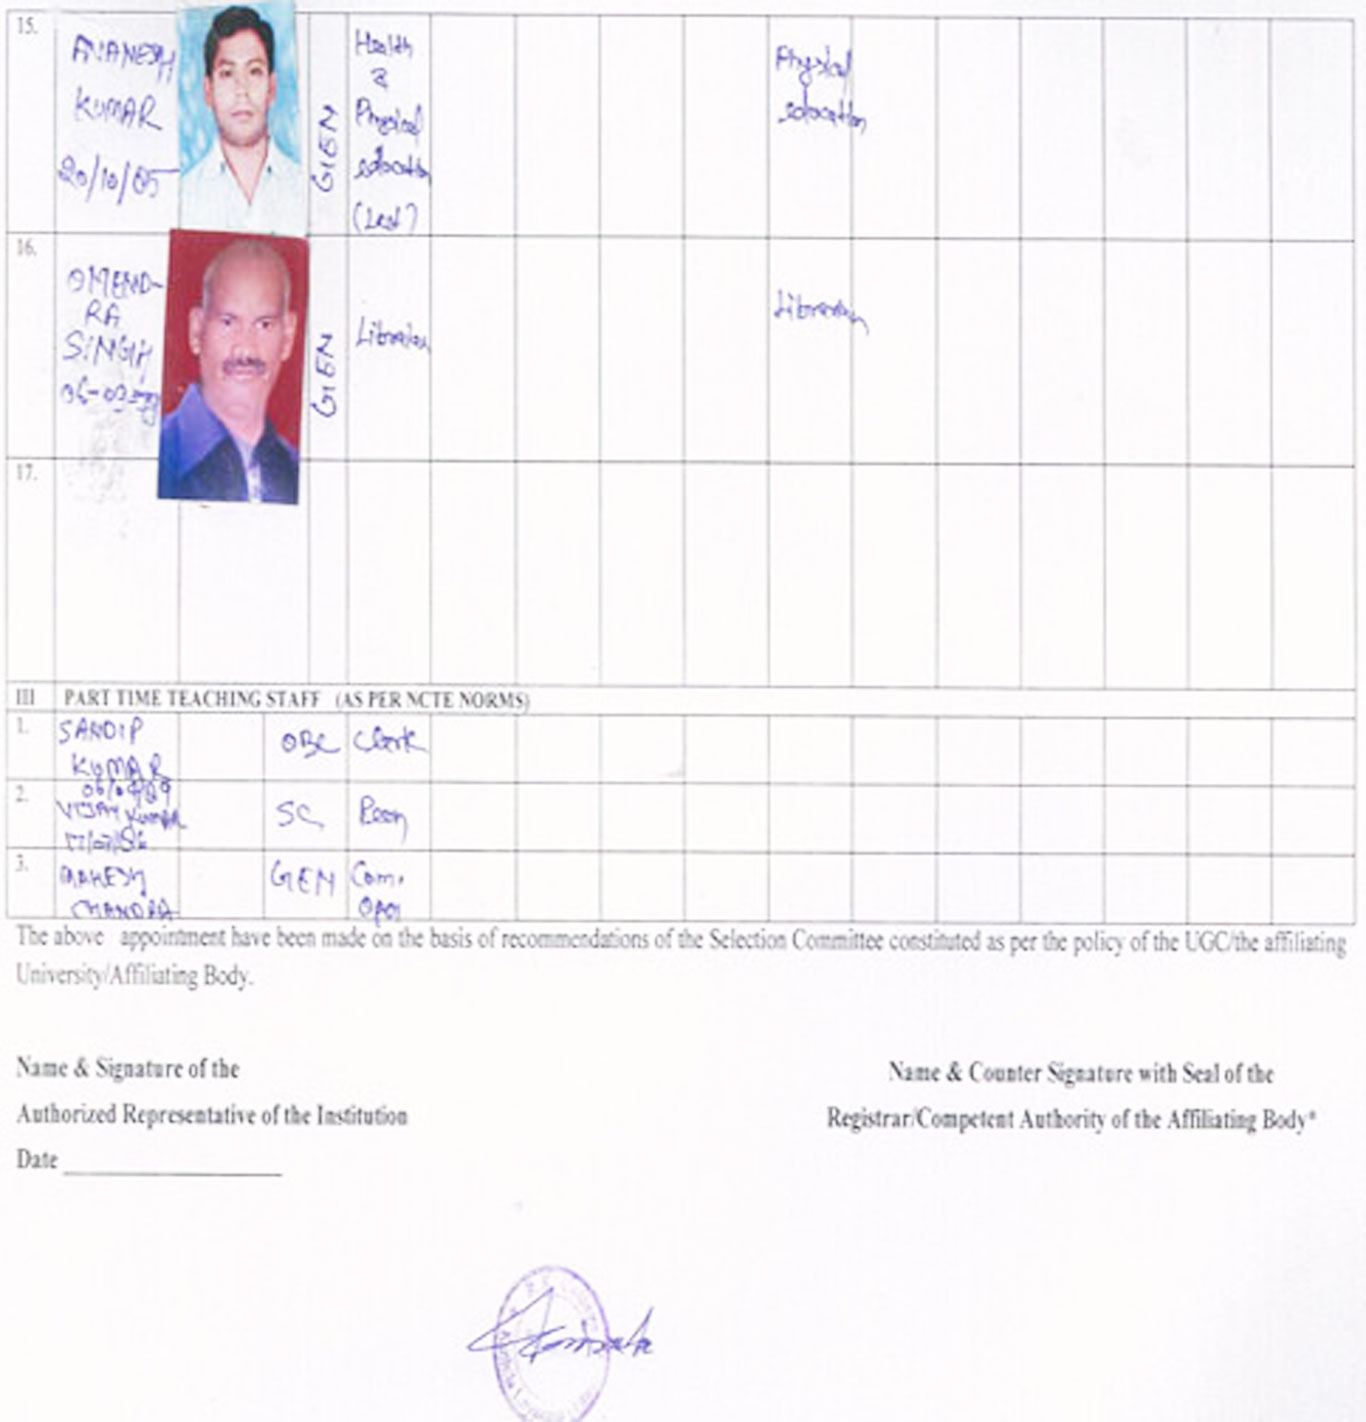 15.
AVANESH
KUMAR
20/10/85
GEN
Health
&
Physical
education
(Lect)
Physical
education
16.
OMEND-
RA
SINGH
GEN
Librarian
Librarian
17.
III PART TIME TEACHING STAFF (AS PER NCTE NORMS)
1.
SANDIP
KUMAR
OBC
Clerk
2.
VIJAY KUMAR
SC
Peon
3.
MAHESH
CHANDRA
GEN
Com.
The above appointment have been made on the basis of recommendations of the Selection Committee constituted as per the policy of the UGC/the affiliating
University/Affiliating Body.
Name & Signature of the
Authorized Representative of the Institution
Date
Name & Counter Signature with Seal of the
Registrar/Competent Authority of the Affiliating Body*